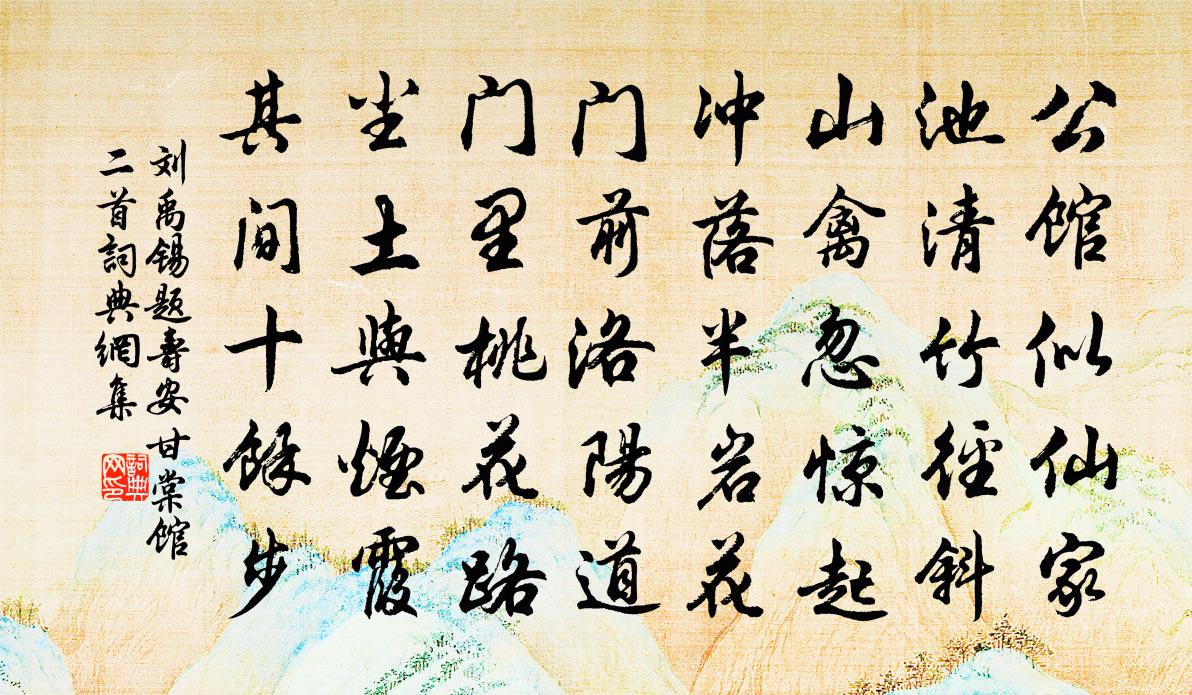 公馆似仙家
池清竹径斜
山禽忽惊起
冲落半岩花
门前洛陽道
门里桃花路
尘土與煙霞
其间十餘步
刘禹锡题壽安甘棠馆
二首詞典網集
詞典
网印